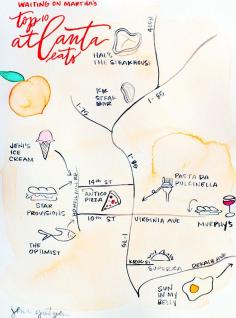 WAITING ON MARTHA'S
top 10
atlanta
eats
HAL'S
THE STEAKHOUSE
KR
STEAK
BAR
I-75
I-85
JENI'S
ICE
CREAM
I-85
14th ST
ANTICO
PIZZA
10th ST
STAR
PROVISIONS
THE
OPTIMIST
PASTA DA
PULCINELLA
VIRGINIA AVE
MURPHY'S
I-75
KROG ST
SUPERICA
DEKALB AVE
SUN
IN MY
BELLY